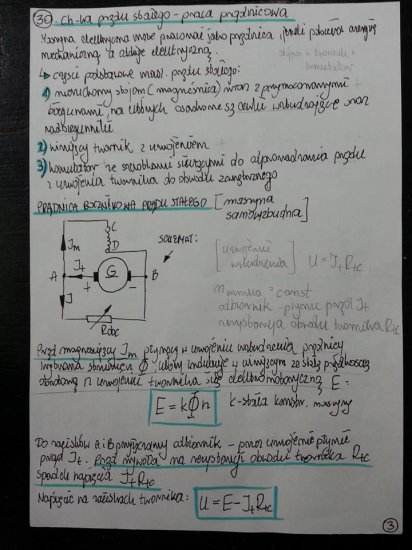 30. Ch-ka prądu stałego - praca prądnicowa
Maszyna elektryczna może pracować jako prądnica, jeżeli pobiera energię
mechaniczną a oddaje elektryczną.
stojan = twornik +
komutator
części podstawowe masz. prądu stałego:
1) nieruchomy stojan (magneśnica) wraz z przymocowanymi
biegunami, na których osadzone są cewki wzbudzające oraz
nadbiegunniki
2) wirujący twornik z uzwojeniem
3) komutator ze szczotkami służącymi do odprowadzania prądu
z uzwojenia twornika do obwodu zewnętrznego
PRĄDNICA BOCZNIKOWA PRĄDU STAŁEGO [maszyna
samowzbudna]
C
D
Im
SCHEMAT:
A
It
+
G
-
B
I
Robc
[uzwojenie
wzbudzenia] U = It Rtc
= const
odbiornik - płynie prąd It
rezystancja obwodu twornika Rtc
Prąd magnesujący Im płynący w uzwojeniu wzbudzenia prądnicy
strumień Φ, który indukuje w wirującym ze stałą prędkością
obrotową n uzwojeniu twornika siłę elektromotoryczną E:
E = kΦn
k - stała konstr. maszyny
Do zacisków A i B przyłączamy odbiornik - przez uzwojenie płynie
prąd It. Prąd wywoła na rezystancji obwodu twornika Rtc
spadek napięcia It Rtc
Napięcie na zaciskach twornika: U = E - It Rtc
3